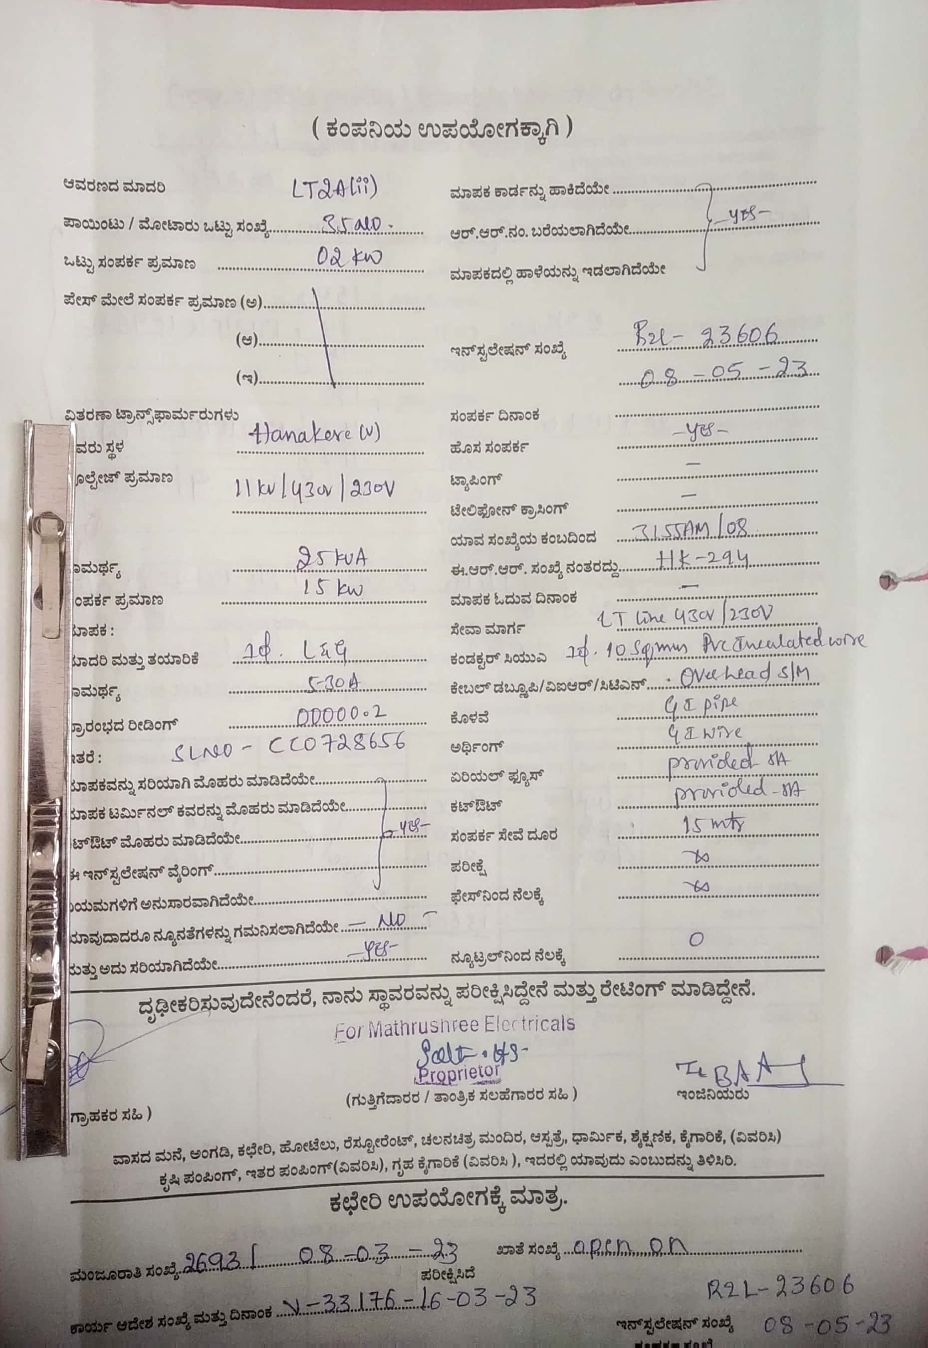 ( ಕಂಪನಿಯ ಉಪಯೋಗಕ್ಕಾಗಿ )
ಆವರಣದ ಮಾದರಿ LT2A(ii)
ಪಾಯಿಂಟು / ಮೋಟಾರು ಒಟ್ಟು ಸಂಖ್ಯೆ 35 No.
ಒಟ್ಟು ಸಂಪರ್ಕ ಪ್ರಮಾಣ 02 kw
ಪೇಸ್ ಮೇಲೆ ಸಂಪರ್ಕ ಪ್ರಮಾಣ (ಅ)
(ಆ)
(ಇ)
ವಿತರಣಾ ಟ್ರಾನ್ಸ್‌ಫಾರ್ಮರುಗಳು
ವರು ಸ್ಥಳ Hanakere (v)
ೋಲ್ಟೇಜ್ ಪ್ರಮಾಣ 11 kv / 430v / 230V
ಾಮರ್ಥ್ಯ 25 kVA
ಂಪರ್ಕ ಪ್ರಮಾಣ 15 kw
ಮಾಪಕ :
ಮಾದರಿ ಮತ್ತು ತಯಾರಿಕೆ 1ф. L&G
ಾಮರ್ಥ್ಯ 5-30A
ಪ್ರಾರಂಭದ ರೀಡಿಂಗ್ 00000.2
ಇತರೆ : SL NO - CC0728656
ಮಾಪಕವನ್ನು ಸರಿಯಾಗಿ ಮೊಹರು ಮಾಡಿದೆಯೇ
ಮಾಪಕ ಟರ್ಮಿನಲ್ ಕವರನ್ನು ಮೊಹರು ಮಾಡಿದೆಯೇ
ಟ್‌ಔಟ್ ಮೊಹರು ಮಾಡಿದೆಯೇ -yes-
ಈ ಇನ್‌ಸ್ಟಲೇಷನ್ ವೈರಿಂಗ್
ಯಮಗಳಿಗೆ ಅನುಸಾರವಾಗಿದೆಯೇ
ಯಾವುದಾದರೂ ನ್ಯೂನತೆಗಳನ್ನು ಗಮನಿಸಲಾಗಿದೆಯೇ - NO -
ಮತ್ತು ಅದು ಸರಿಯಾಗಿದೆಯೇ -yes-
ಮಾಪಕ ಕಾರ್ಡನ್ನು ಹಾಕಿದೆಯೇ
ಆರ್.ಆರ್.ನಂ. ಬರೆಯಲಾಗಿದೆಯೇ -yes-
ಮಾಪಕದಲ್ಲಿ ಹಾಳೆಯನ್ನು ಇಡಲಾಗಿದೆಯೇ
ಇನ್‌ಸ್ಟಲೇಷನ್ ಸಂಖ್ಯೆ R2L - 23606
08 - 05 - 23
ಸಂಪರ್ಕ ದಿನಾಂಕ
ಹೊಸ ಸಂಪರ್ಕ -yes-
ಟ್ಯಾಪಿಂಗ್ -
ಟೇಲಿಫೋನ್ ಕ್ರಾಸಿಂಗ್ -
ಯಾವ ಸಂಖ್ಯೆಯ ಕಂಬದಿಂದ 3155AM / 08
ಈ.ಆರ್.ಆರ್. ಸಂಖ್ಯೆ ನಂತರದ್ದು HK-294
ಮಾಪಕ ಓದುವ ದಿನಾಂಕ -
ಸೇವಾ ಮಾರ್ಗ LT line 430V / 230V
ಕಂಡಕ್ಟರ್ ಸಿಯುಎ 1ф. 10 Sqmm Pvc Insulated wire
ಕೇಬಲ್ ಡಬ್ಲ್ಯೂಪಿ/ಎಐಆರ್/ಸಿಟಿಎನ್ Over head S/M
ಕೊಳವೆ G I pipe
ಅರ್ಥಿಂಗ್ G I wire
ಏರಿಯಲ್ ಫ್ಯೂಸ್ provided
ಕಟ್‌ಔಟ್ provided
ಸಂಪರ್ಕ ಸೇವೆ ದೂರ 15 mtr
ಪರೀಕ್ಷೆ ∞
ಫೇಸ್‌ನಿಂದ ನೆಲಕ್ಕೆ ∞
ನ್ಯೂಟ್ರಲ್‌ನಿಂದ ನೆಲಕ್ಕೆ 0
ದೃಢೀಕರಿಸುವುದೇನೆಂದರೆ, ನಾನು ಸ್ಥಾವರವನ್ನು ಪರೀಕ್ಷಿಸಿದ್ದೇನೆ ಮತ್ತು ರೇಟಿಂಗ್ ಮಾಡಿದ್ದೇನೆ.
For Mathrushree Electricals
Proprietor
ಗ್ರಾಹಕರ ಸಹಿ )
(ಗುತ್ತಿಗೆದಾರರ / ತಾಂತ್ರಿಕ ಸಲಹೆಗಾರರ ಸಹಿ )
ಇಂಜಿನಿಯರು
ವಾಸದ ಮನೆ, ಅಂಗಡಿ, ಕಛೇರಿ, ಹೋಟೆಲು, ರೆಸ್ಟೋರೆಂಟ್, ಚಲನಚಿತ್ರ ಮಂದಿರ, ಆಸ್ಪತ್ರೆ, ಧಾರ್ಮಿಕ, ಶೈಕ್ಷಣಿಕ, ಕೈಗಾರಿಕೆ, (ವಿವರಿಸಿ)
ಕೃಷಿ ಪಂಪಿಂಗ್, ಇತರ ಪಂಪಿಂಗ್(ವಿವರಿಸಿ), ಗೃಹ ಕೈಗಾರಿಕೆ (ವಿವರಿಸಿ ), ಇದರಲ್ಲಿ ಯಾವುದು ಎಂಬುದನ್ನು ತಿಳಿಸಿರಿ.
ಕಛೇರಿ ಉಪಯೋಗಕ್ಕೆ ಮಾತ್ರ.
ಮಂಜೂರಾತಿ ಸಂಖ್ಯೆ 2693 / 08 - 03 - 23 ಖಾತೆ ಸಂಖ್ಯೆ open on
ಪರೀಕ್ಷಿಸಿದೆ
ಕಾರ್ಯ ಆದೇಶ ಸಂಖ್ಯೆ ಮತ್ತು ದಿನಾಂಕ V - 33176 - 16 - 03 - 23
R2L - 23606
ಇನ್‌ಸ್ಟಲೇಷನ್ ಸಂಖ್ಯೆ 08 - 05 - 23